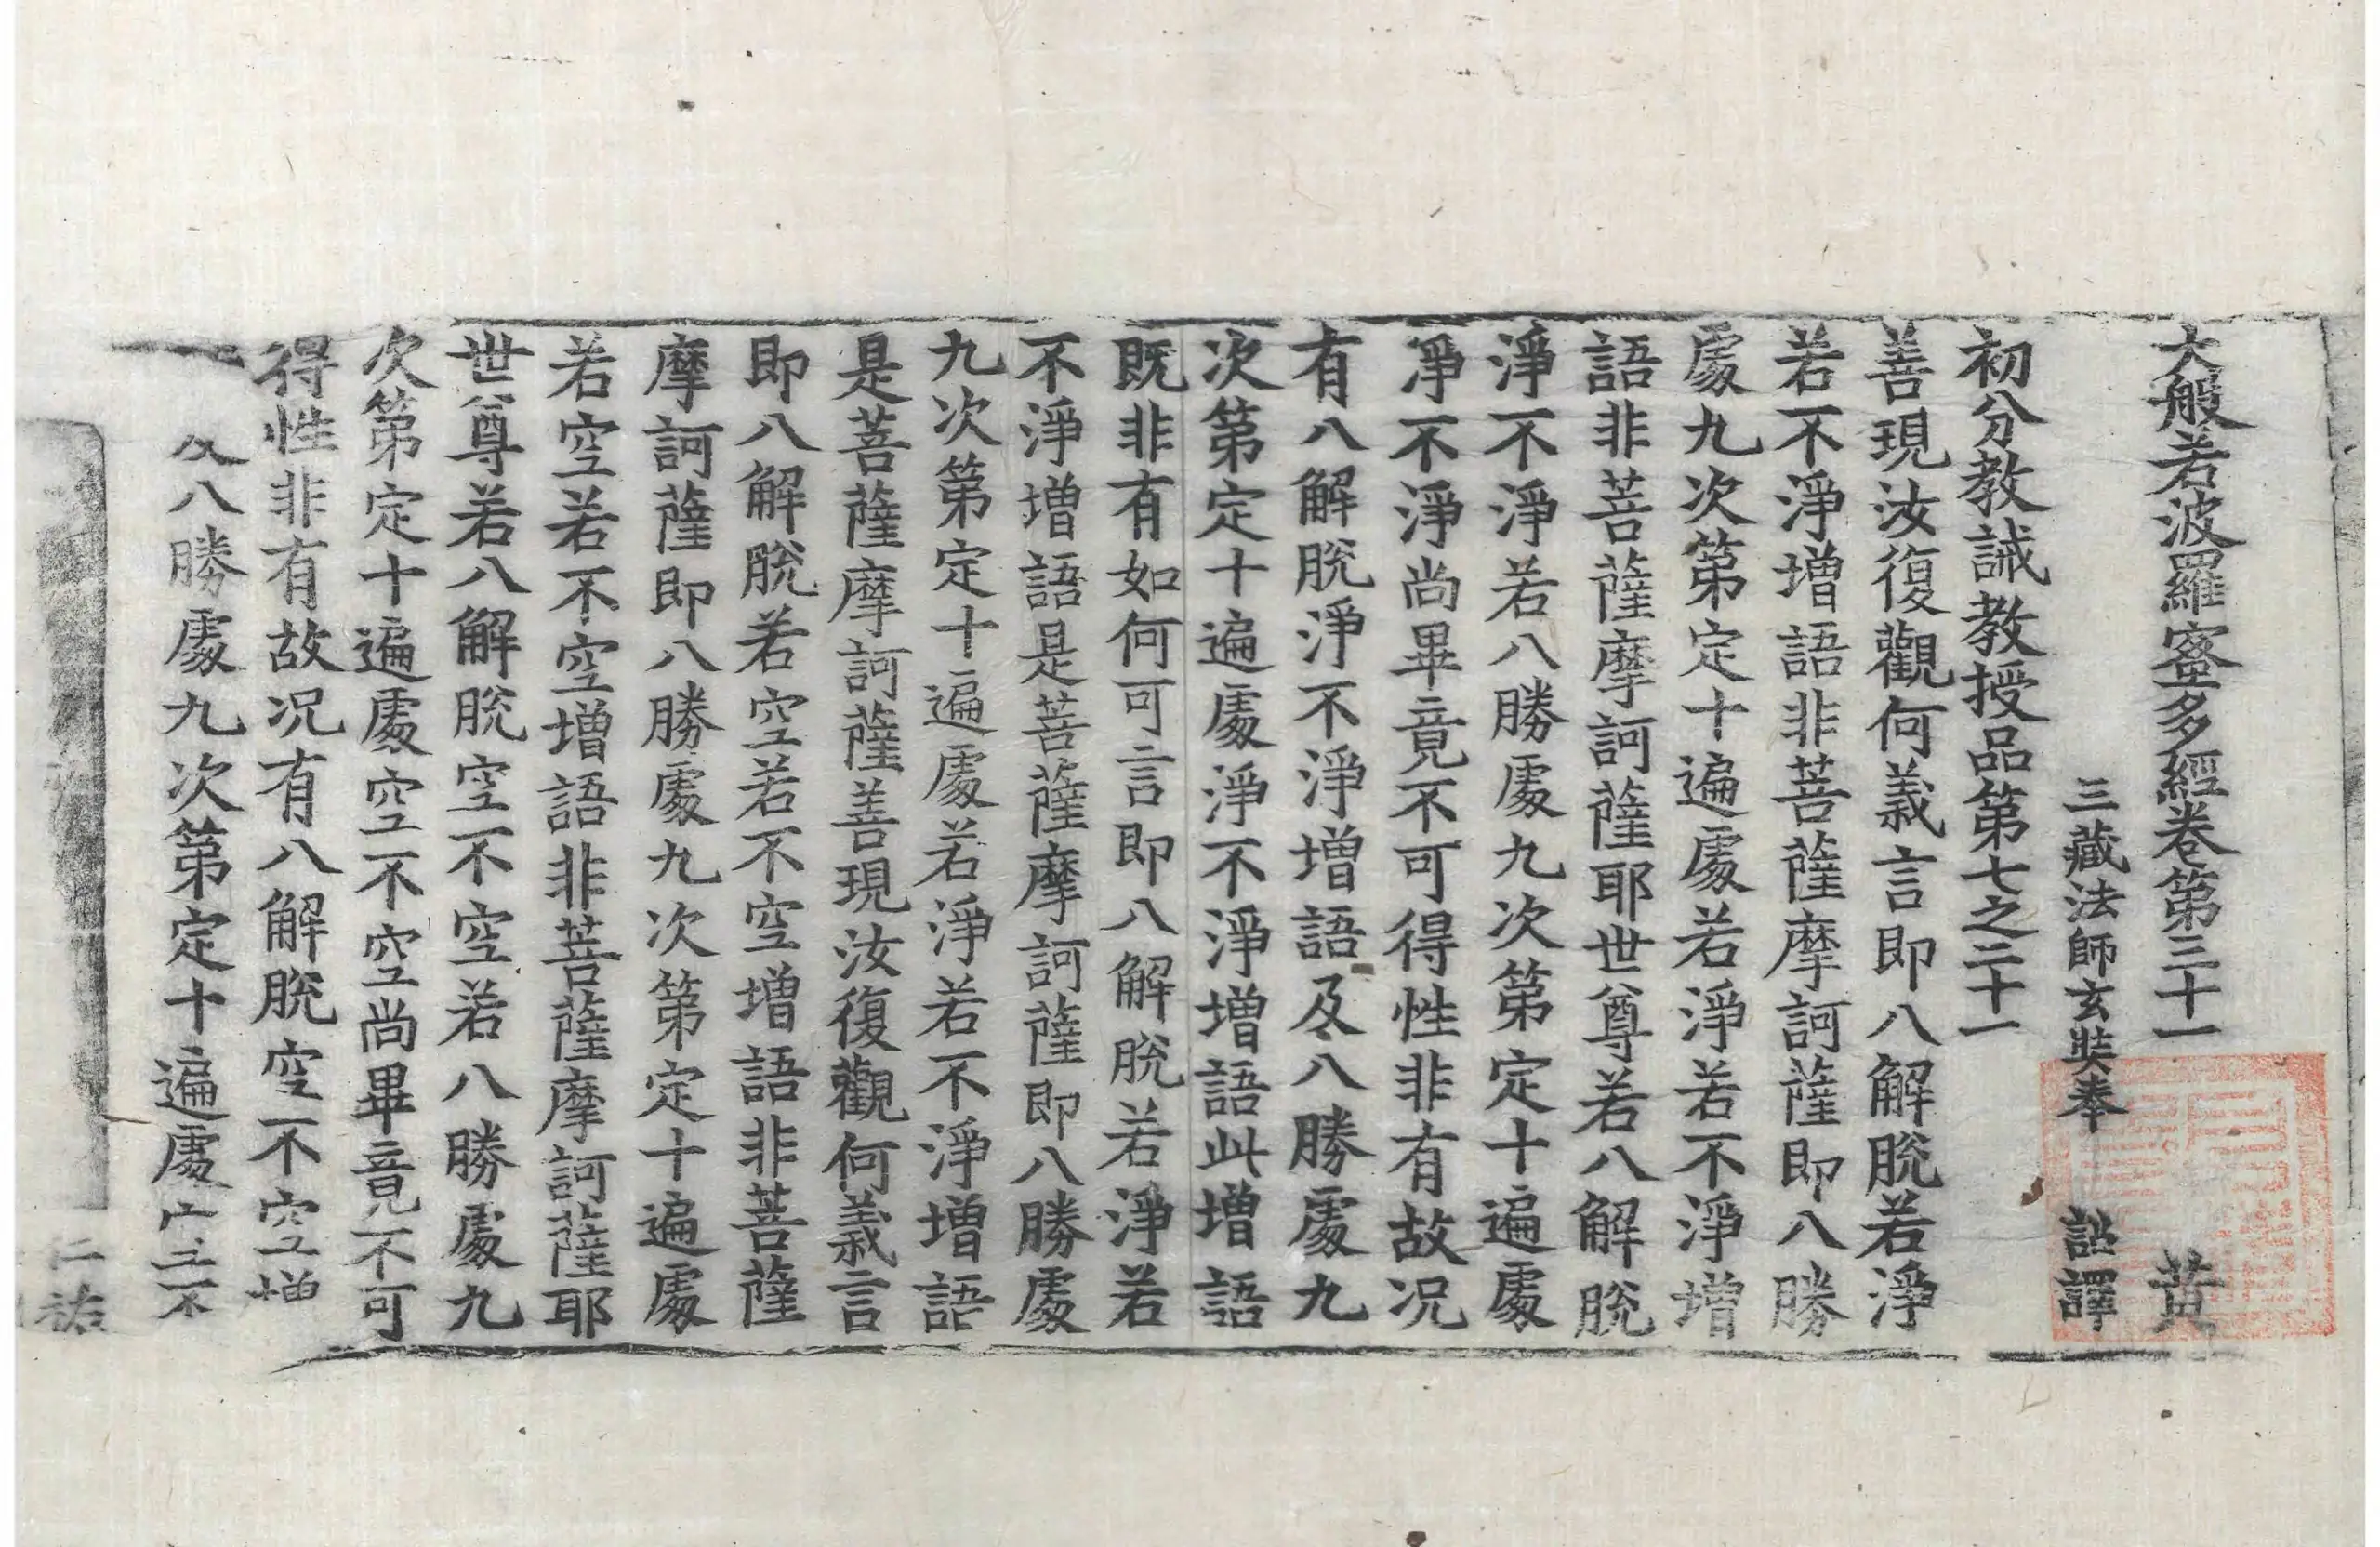 大般若波羅蜜多經卷第三十一 黃
三藏法師玄奘奉 詔譯
初分教誡教授品第七之二十一
善現汝復觀何義言即八解脫若淨
若不淨增語非菩薩摩訶薩即八勝
處九次第定十遍處若淨若不淨增
語非菩薩摩訶薩耶世尊若八解脫
淨不淨若八勝處九次第定十遍處
淨不淨尚畢竟不可得性非有故况
有八解脫淨不淨增語及八勝處九
次第定十遍處淨不淨增語此增語
既非有如何可言即八解脫若淨若
不淨增語是菩薩摩訶薩即八勝處
九次第定十遍處若淨若不淨增語
是菩薩摩訶薩善現汝復觀何義言
即八解脫若空若不空增語非菩薩
摩訶薩即八勝處九次第定十遍處
若空若不空增語非菩薩摩訶薩耶
世尊若八解脫空不空若八勝處九
次第定十遍處空不空尚畢竟不可
得性非有故况有八解脫空不空增
及八勝處九次第定十遍處空不